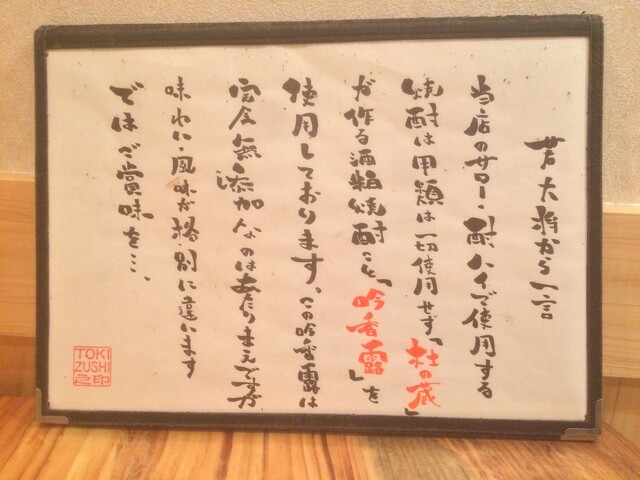 若大将から一言
当店のサワー・酎ハイで使用する
焼酎は甲類は一切使用せず「杜の蔵」
が作る酒粕焼酎こと「吟香露」を
使用しております。この吟香露は
完全無添加なのはあたりまえですが
味わい・風味が格別に違います
ではご賞味を…、
TOKI
ZUSHI
之印